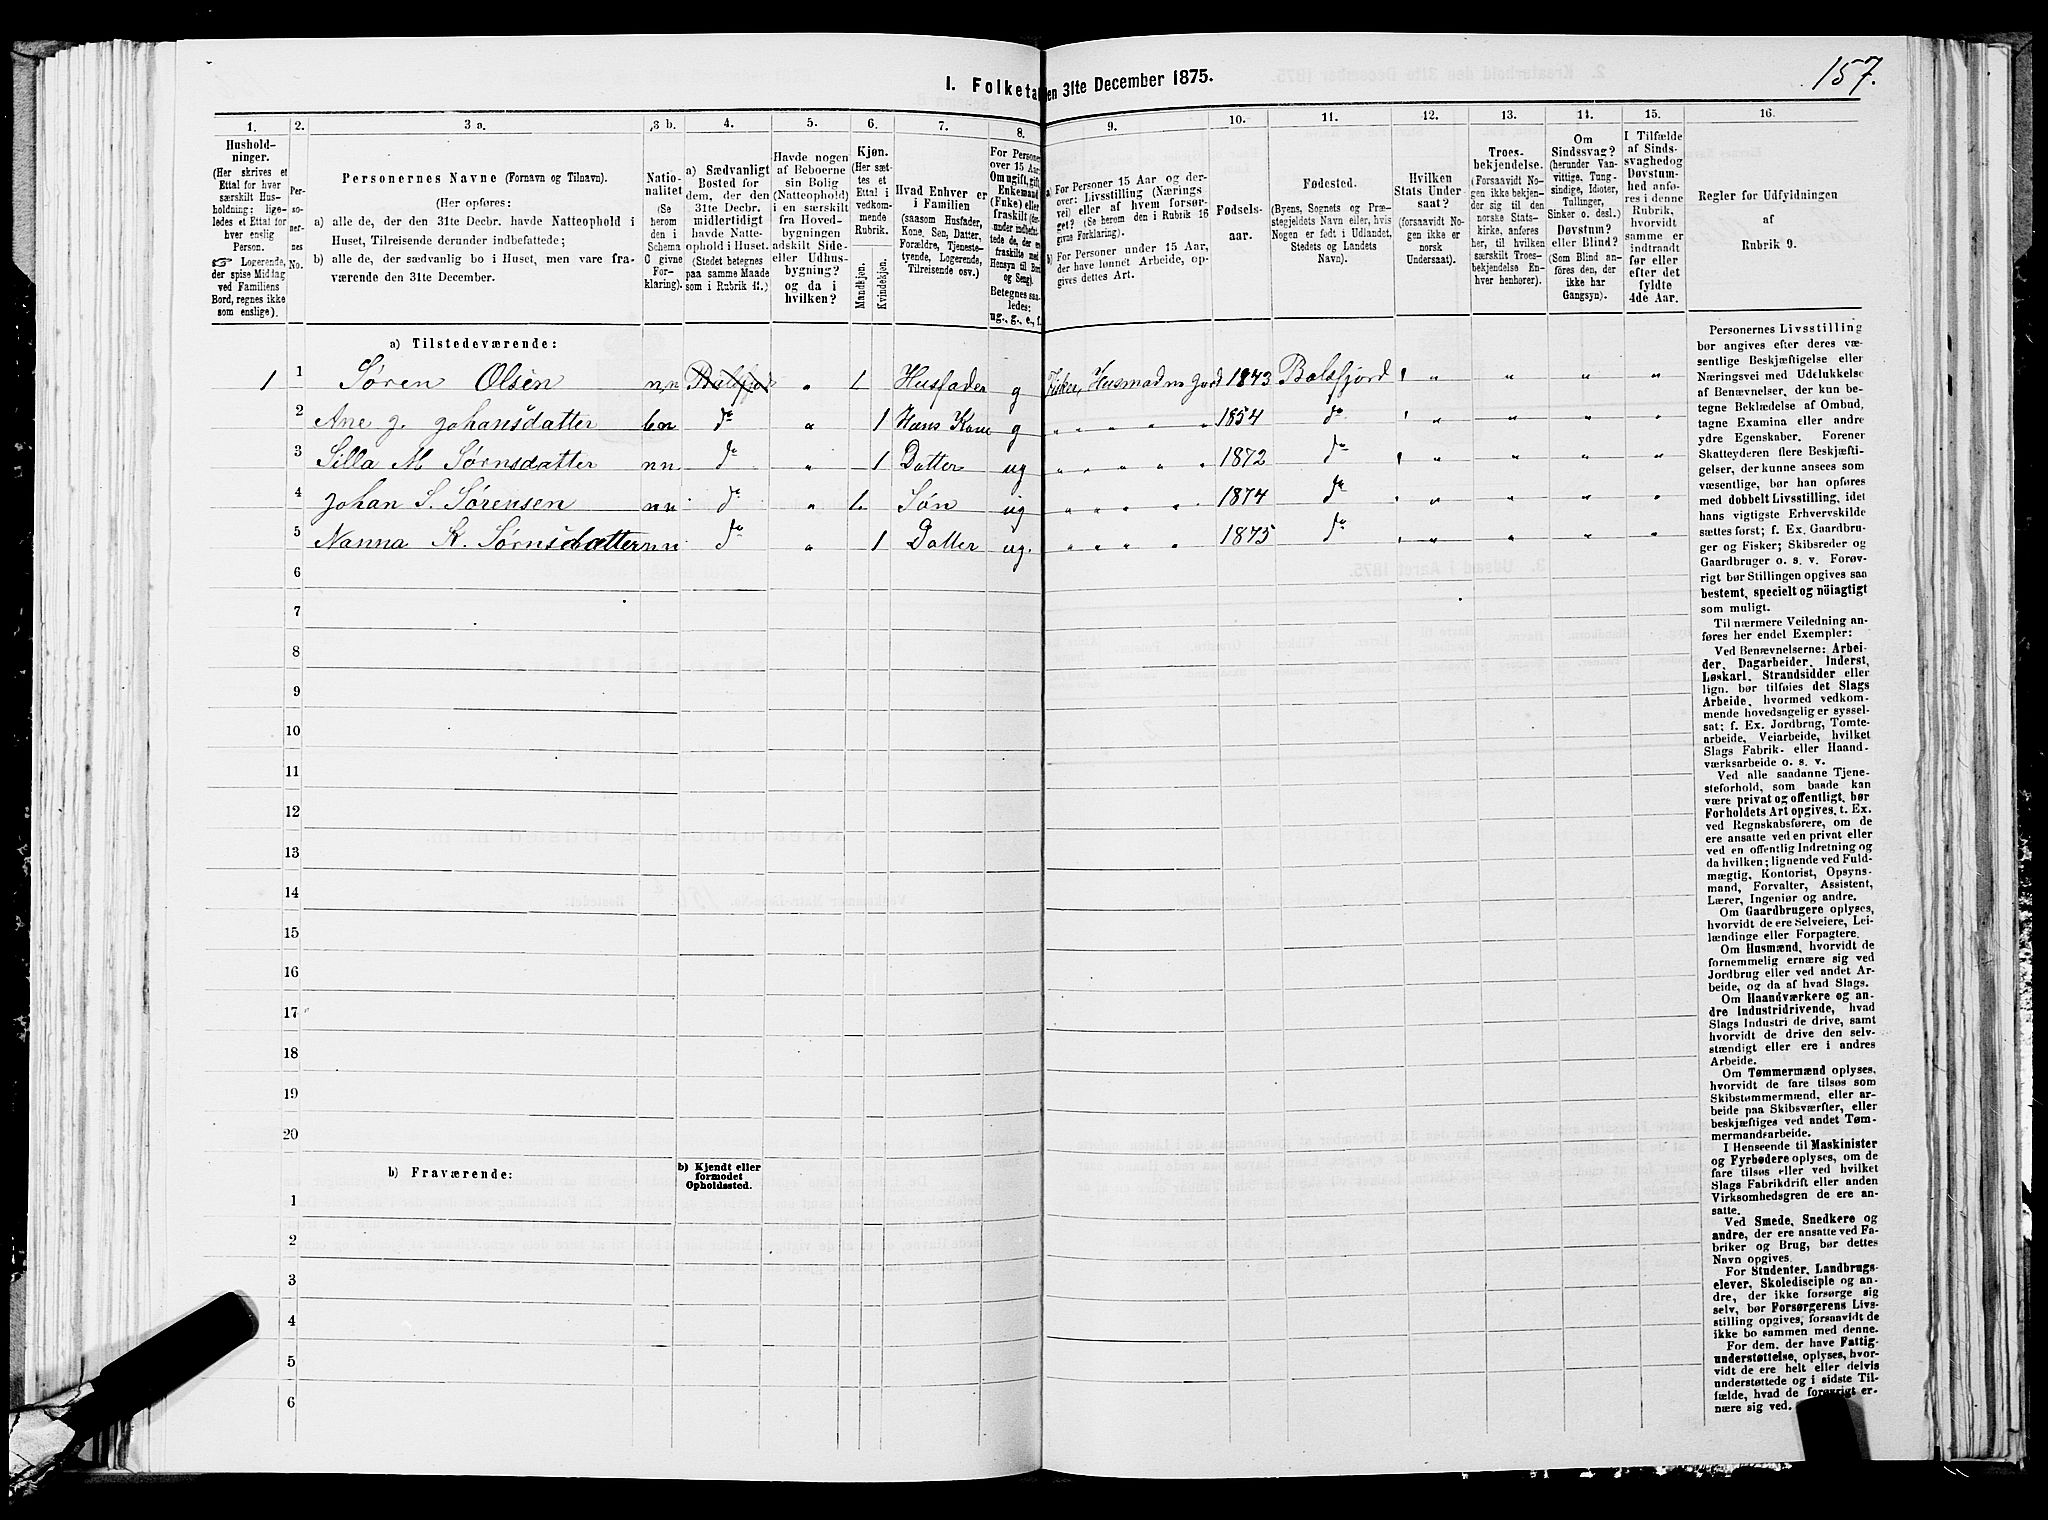 157.
I. Folketa en 31te December 1875.
1. 2. 3 a. 3 b. 4. 5. 6. 7. 8. 9. 10. 11. 12. 13. 14. 15. 16.
Hushold-
ninger.
(Her skrives et
Ettal for hver
særskilt Hus-
holdning; lige-
ledes et Ettal for
hver enslig
Person.
☞ Logerende,
der spise Middag
ved Familiens
Bord, regnes ikke
som enslige).
Per-
so-
ner-
nes
No.
Personernes Navne (Fornavn og Tilnavn).
(Her opføres:
a) alle de, der den 31te Decbr. havde Natteophold i
Huset, Tilreisende derunder indbefattede;
b) alle de, der sædvanlig bo i Huset, men vare fra-
værende den 31te December.
Natio-
nalitet
(Se
herom
den i
Schema
C givne
For-
klaring).
a) Sædvanligt
Bosted for
dem, der den
31te Decbr.
midlertidigt
havde Natte-
ophold i Huset.
(Stedet betegnes
paa samme Maade
som i Rubrik 11.)
Havde nogen
af Beboerne
sin Bolig
(Natteophold)
i en særskilt
fra Hoved-
bygningen
adskilt Side-
eller Udhus-
bygning?
og da i
hvilken?
Kjøn.
(Her sæt-
tes et
Ettal i
vedkom-
mende
Rubrik.
Mandkjøn.
Kvindekjøn.
Hvad Enhver er
i Familien
(saasom Husfader,
Kone, Søn, Datter,
Forældre, Tjeneste-
tyende, Logerende,
Tilreisende osv.)
For Personer
over 15 Aar:
Om ugift, gift,
Enkemand
(Enke) eller
fraskilt (der-
under indbefat-
tede de, der ere
fraskilte med
Hensyn til Bord
og Seng).
Betegnes saa-
ledes:
ug., g., e., f.
a) For Personer 15 Aar og der-
over: Livsstilling (Nærings-
vei) eller af hvem forsør-
get? (Se herom den i Rubrik 16
givne Forklaring).
b) For Personer under 15 Aar,
der have lønnet Arbeide, op-
gives dettes Art.
Fødsels-
aar.
Fødested.
(Byens, Sognets og Præ-
stegjeldets Navn eller, hvis
Nogen er født i Udlandet,
Stedets og Landets
Navn).
Hvilken
Stats Under-
saat?
(forsaavidt No-
gen ikke er
norsk
Undersaat).
Troes-
bekjendelse.
(Forsaavidt No-
gen ikke bekjen-
der sig til den
norske Stats-
kirke, anføres
her, til hvilken
særskilt Troes-
bekjendelse En-
hver henhører).
Om
Sindssvag?
(herunder Van-
vittige, Tung-
sindige, Idioter,
Tullinger,
Sinker o. desl.)
Døvstum?
eller Blind?
(Som Blind an-
føres den, der
ikke har
Gangsyn).
I Tilfælde
af Sinds-
svaghed og
Døvstum-
hed anfø-
res i denne
Rubrik,
hvorvidt
samme er
indtraadt
før eller
efter det
fyldte
4de Aar.
Regler for Udfyldningen
af
Rubrik 9.
a) Tilstedeværende:
1 1 Søren Olsen n,n Balsfjord " 1 Husfader g Fisker, Husmad m jord 1843 Balsfjord " " " " "
2 Ane J. Johansdatter bn do " 1 Hans Kone g " " " " " 1854 do " " " " "
3 Silla M Sørnsdatter nn do " 1 Datter ug " " " " " 1872 do " " " " "
4 Johan S. Sørensen nn do " 1 Søn ug " " " " " 1874 do " " " " "
5 Nanna K. Sørnsdatter nn do " 1 Datter ug. " " " " 1875 do " " " " "
6
7
8
9
10
11
12
13
14
15
16
17
18
19
20
b) Fraværende:
b) Kjendt eller
formodet
Opholdssted.
1
2
3
4
5
6
Personernes Livsstilling
bør angives efter deres væ-
sentlige Beskjæftigelse eller
Næringsvei med Udelukkelse
af Benævnelser, der kun be-
tegne Beklædelse af Ombud,
tagne Examina eller andre
ydre Egenskaber. Forener
Skatteyderen flere Beskjæfti-
gelser, der kunne ansees som
væsentlige, bør han opføres
med dobbelt Livsstilling, idet
hans vigtigste Erhvervskilde
sættes først; f. Ex. Gaardbru-
ger og Fisker; Skibsreder og
Gaardbruger o. s. v. Forøv-
rigt bør Stillingen opgives saa
bestemt, specielt og nöiagtigt
som muligt.
Til nærmere Veiledning an-
føres her endel Exempler:
Ved Benævnelserne: Arbei-
der, Dagarbeider, Inderst,
Løskarl, Strandsidder eller
lign. bør tilføies det Slags
Arbeide, hvormed vedkom-
mende hovedsagelig er syssel-
sat; f. Ex. Jordbrug, Tomte-
arbeide, Veiarbeide, hvilket
Slags Fabrik- eller Haand-
værksarbeide o. s. v.
Ved alle saadanne Tjene-
steforhold, som baade kan
være privat og offentligt, bør
Forholdets Art opgives, t. Ex.
ved Regnskabsførere, om de
ere ansatte ved en privat eller
ved en offentlig Indretning og
da hvilken; lignende ved Fuld-
mægtig, Kontorist, Opsyns-
mand, Forvalter, Assistent,
Lærer, Ingeniør og andre.
Om Gaardbrugere oplyses,
hvorvidt de ere Selveiere, Lei-
lændinge eller Forpagtere.
Om Husmænd, hvorvidt de
fornemmelig ernære sig ved
Jordbrug eller ved andet Ar-
beide, og da af hvad Slags.
Om Haandværkere og an-
dre Industridrivende, hvad
Slags Industri de drive, samt
hvorvidt de drive den selv-
stændigt eller ere i andres
Arbeide.
Om Tømmermænd oplyses,
hvorvidt de fare tilsøs som
Skibstømmermænd, eller ar-
beide paa Skibsværfter, eller
beskjæftiges ved andet Tøm-
mermandsarbeide.
I Henseende til Maskinister
og Fyrbødere oplyses, om de
fare tilsøs eller ved hvilket
Slags Fabrikdrift eller anden
Virksomhedsgren de ere an-
satte.
Ved Smede, Snedkere og
andre, der ere ansatte ved Fa-
briker og Brug, bør dettes
Navn opgives.
For Studenter, Landbrugs-
elever, Skoledisciple og an-
dre, der ikke forsørge sig
selv, bør Forsørgerens Livs-
stilling opgives, forsaavidt de
ikke bo sammen med denne.
For dem, der have Fattig-
understøttelse, oplyses, hvor-
vidt de ere helt eller delvis
understøttede og i sidste Til-
fælde, hvad de forøvrigt er-
nære sig ved.